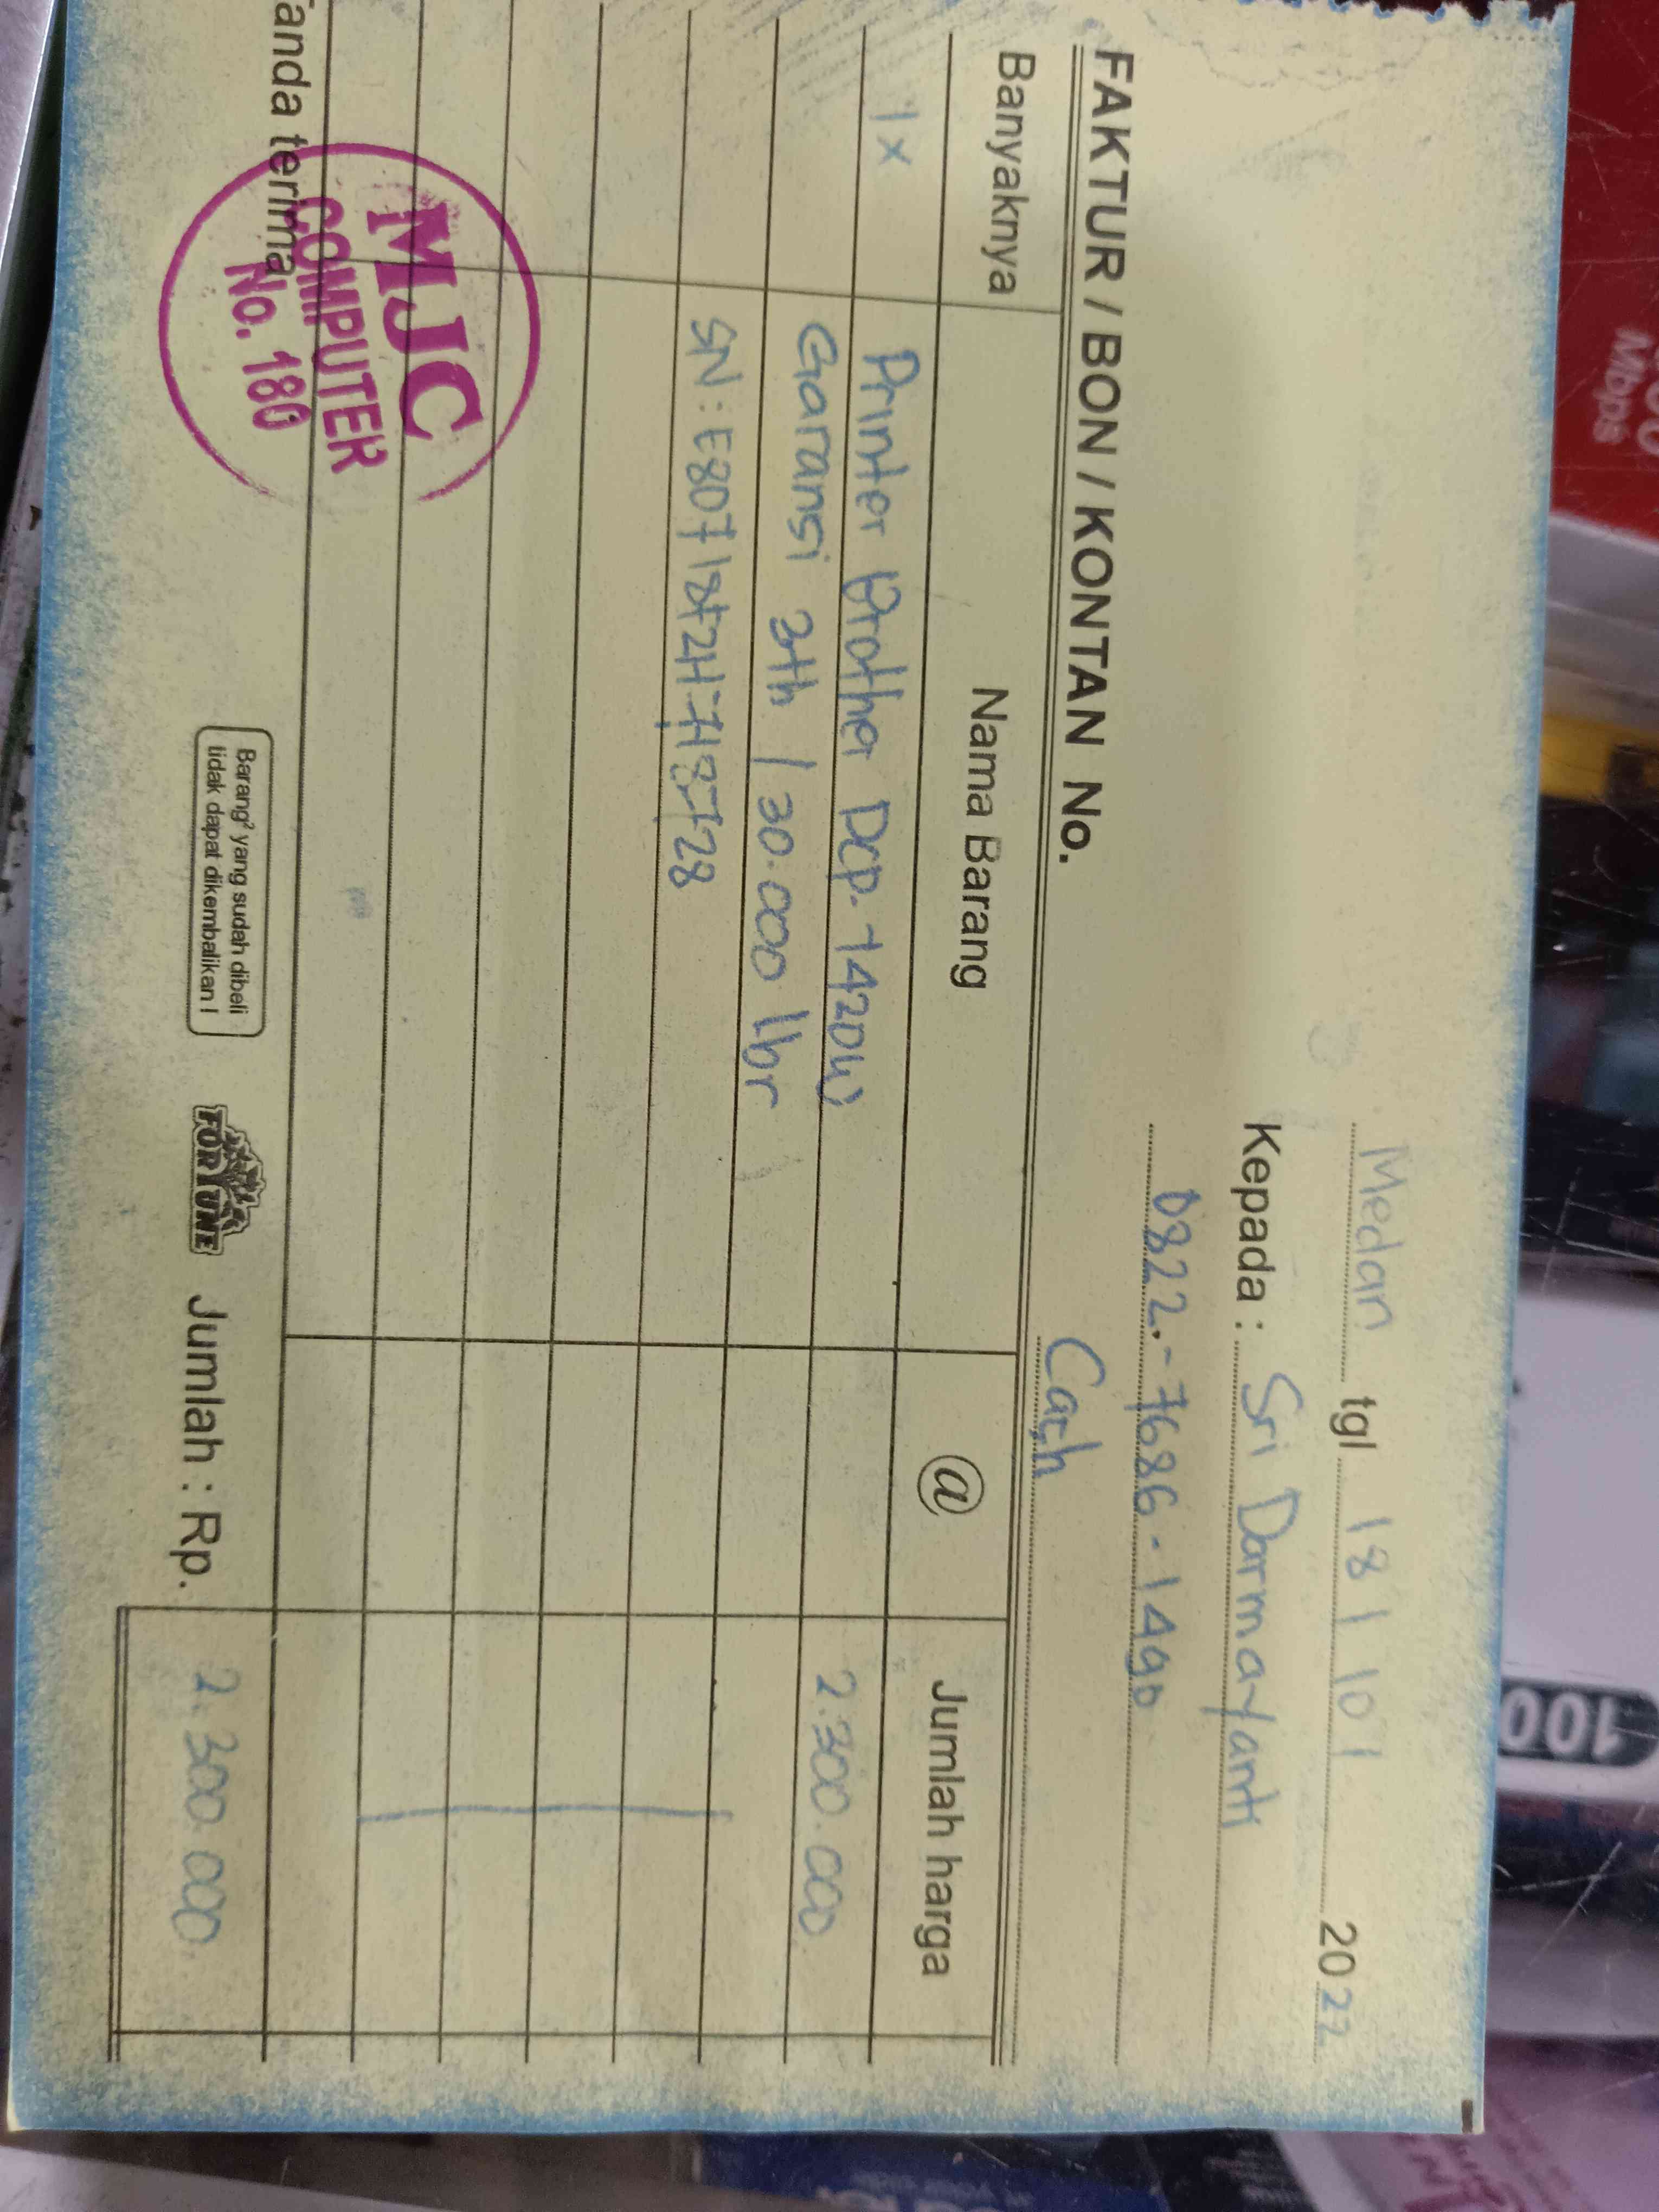 Medan tgl 18 / 01 / 2022
Kepada : Sri Darmayanti
0822.-7686-1490
Cash
FAKTUR / BON / KONTAN No.
Banyaknya Nama Barang @ Jumlah harga
1x Printer Brother DCP-T420W 2.300.000
Garansi 3th / 30.000 lbr
2.300.000.
Tanda terima
Barang² yang sudah dibeli
tidak dapat dikembalikan !
FORTUNE
Jumlah : Rp.
MJC
COMPUTER
No. 180
Mbps
100